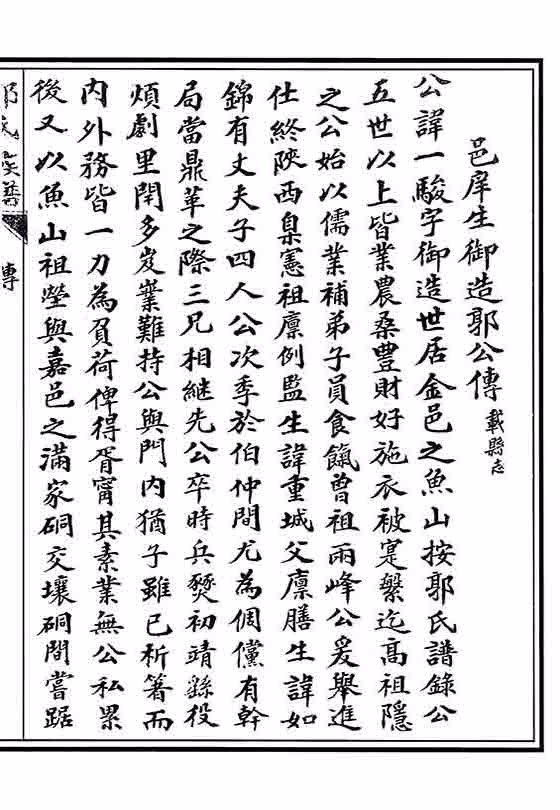 邑庠生御造郭公傳 載縣志
公諱一駿字御造世居金邑之魚山按郭氏譜錄公
五世以上皆業農桑豐財好施衣被寔繫迄高祖隱
之公始以儒業補弟子員食餼曾祖雨峰公爰舉進
仕終陝西臬憲祖廩例監生諱重城父廩膳生諱如
錦有丈夫子四人公次季於伯仲間尤為倜儻有幹
局當鼎革之際三兄相繼先公卒時兵燹初靖繇役
煩劇里閈多岌嶪難持公與門內猶子雖已析箸而
內外務皆一力為負荷俾得胥甯其素業無公私累
後又以魚山祖塋與嘉邑之滿家硐交壤硐間嘗踞
郭氏族譜
傳